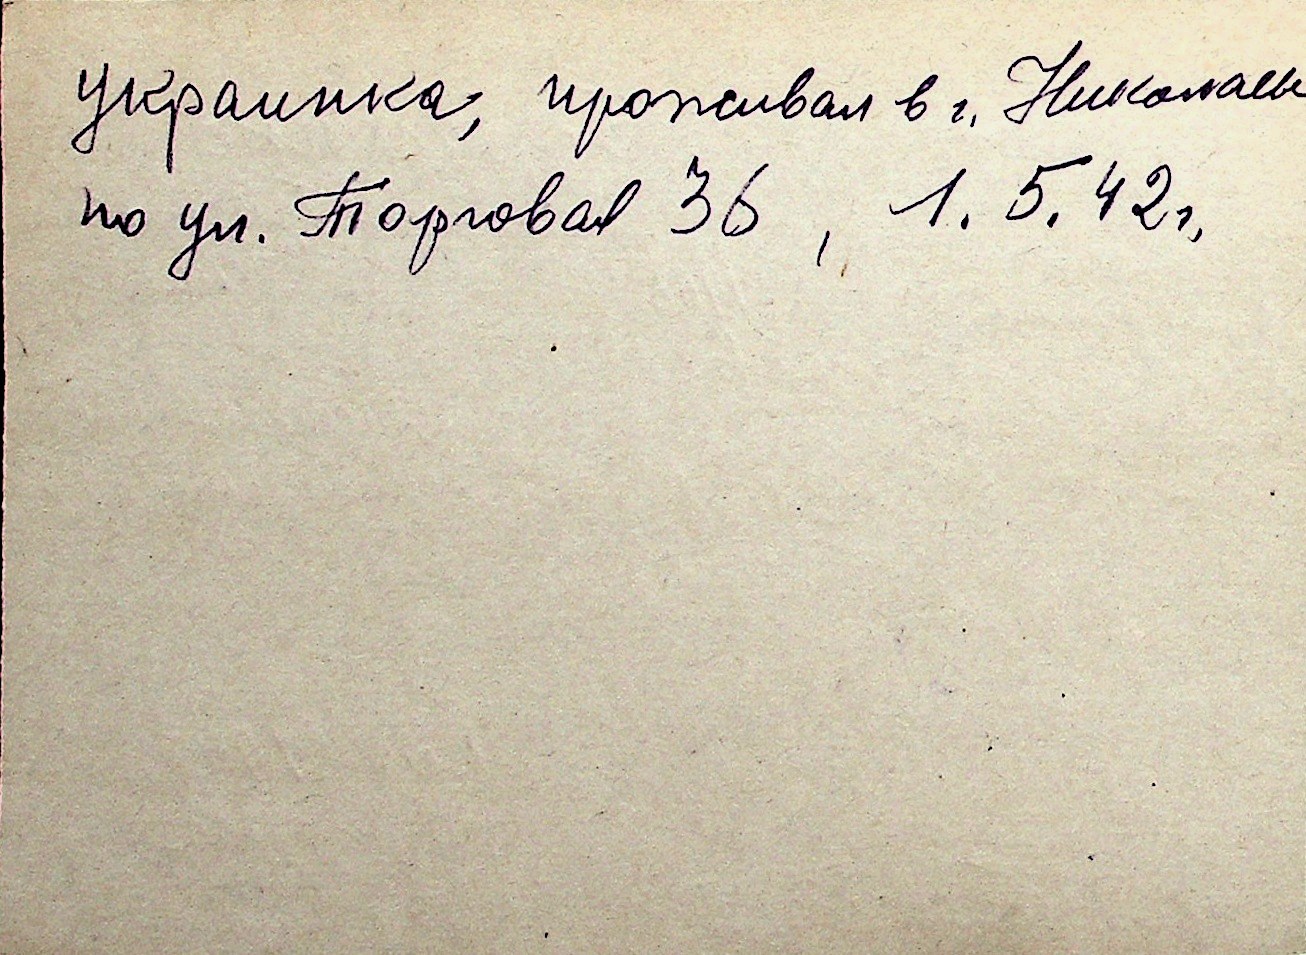 украинка, проживал в г. Николаев
по ул. Торговая 36, 1.5.42г.